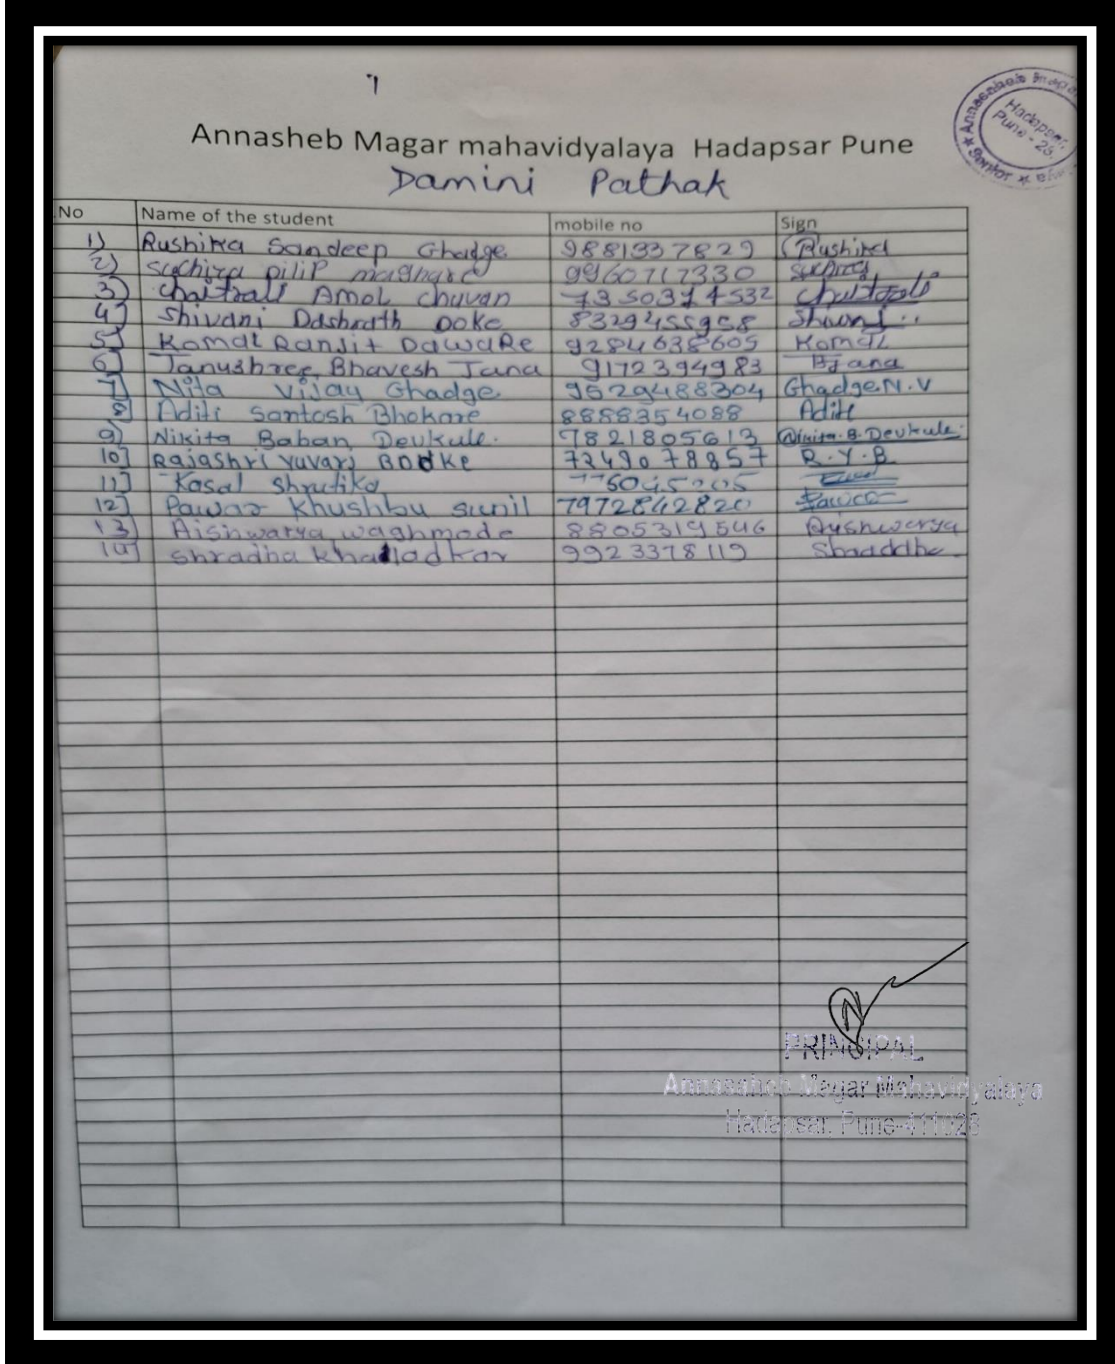 Annasheb Magar mahavidyalaya Hadapsar Pune
Damini Pathak
No Name of the student mobile no Sign
1) Rushika Sandeep Ghadge 9881337829 Rushika
2) Suchira Dilip 9960717330
3) Chaitrali Amol Chavan 7350374532 Chaitrali
4) Shivani Dashrath Doke 8329455958
5) Komal Ranjit Daware 9284638605 Komal
6) Tanushree Bhavesh Jana 9172394983 BJana
7] Nita Vijay Ghadge 9529488304 Ghadge N.V
8] Aditi Santosh Bhokare 8888354088 Aditi
9) Nikita Baban Devkule. 7821805613 Nikita.B.Devkule.
10] Rajashri Yuvarj Bodke 7249078857 R.Y.B
11] Kasal Shrutika
12] Pawar Khushbu sunil 7972842820
13] Aishwarya waghmode 8805319546 Aishwarya
14] shradha khalladkar 9923378119 Shraddha
PRINCIPAL
Annasaheb Magar Mahavidyalaya
Hadapsar, Pune-411028
Hadapsar,
Pune - 28.